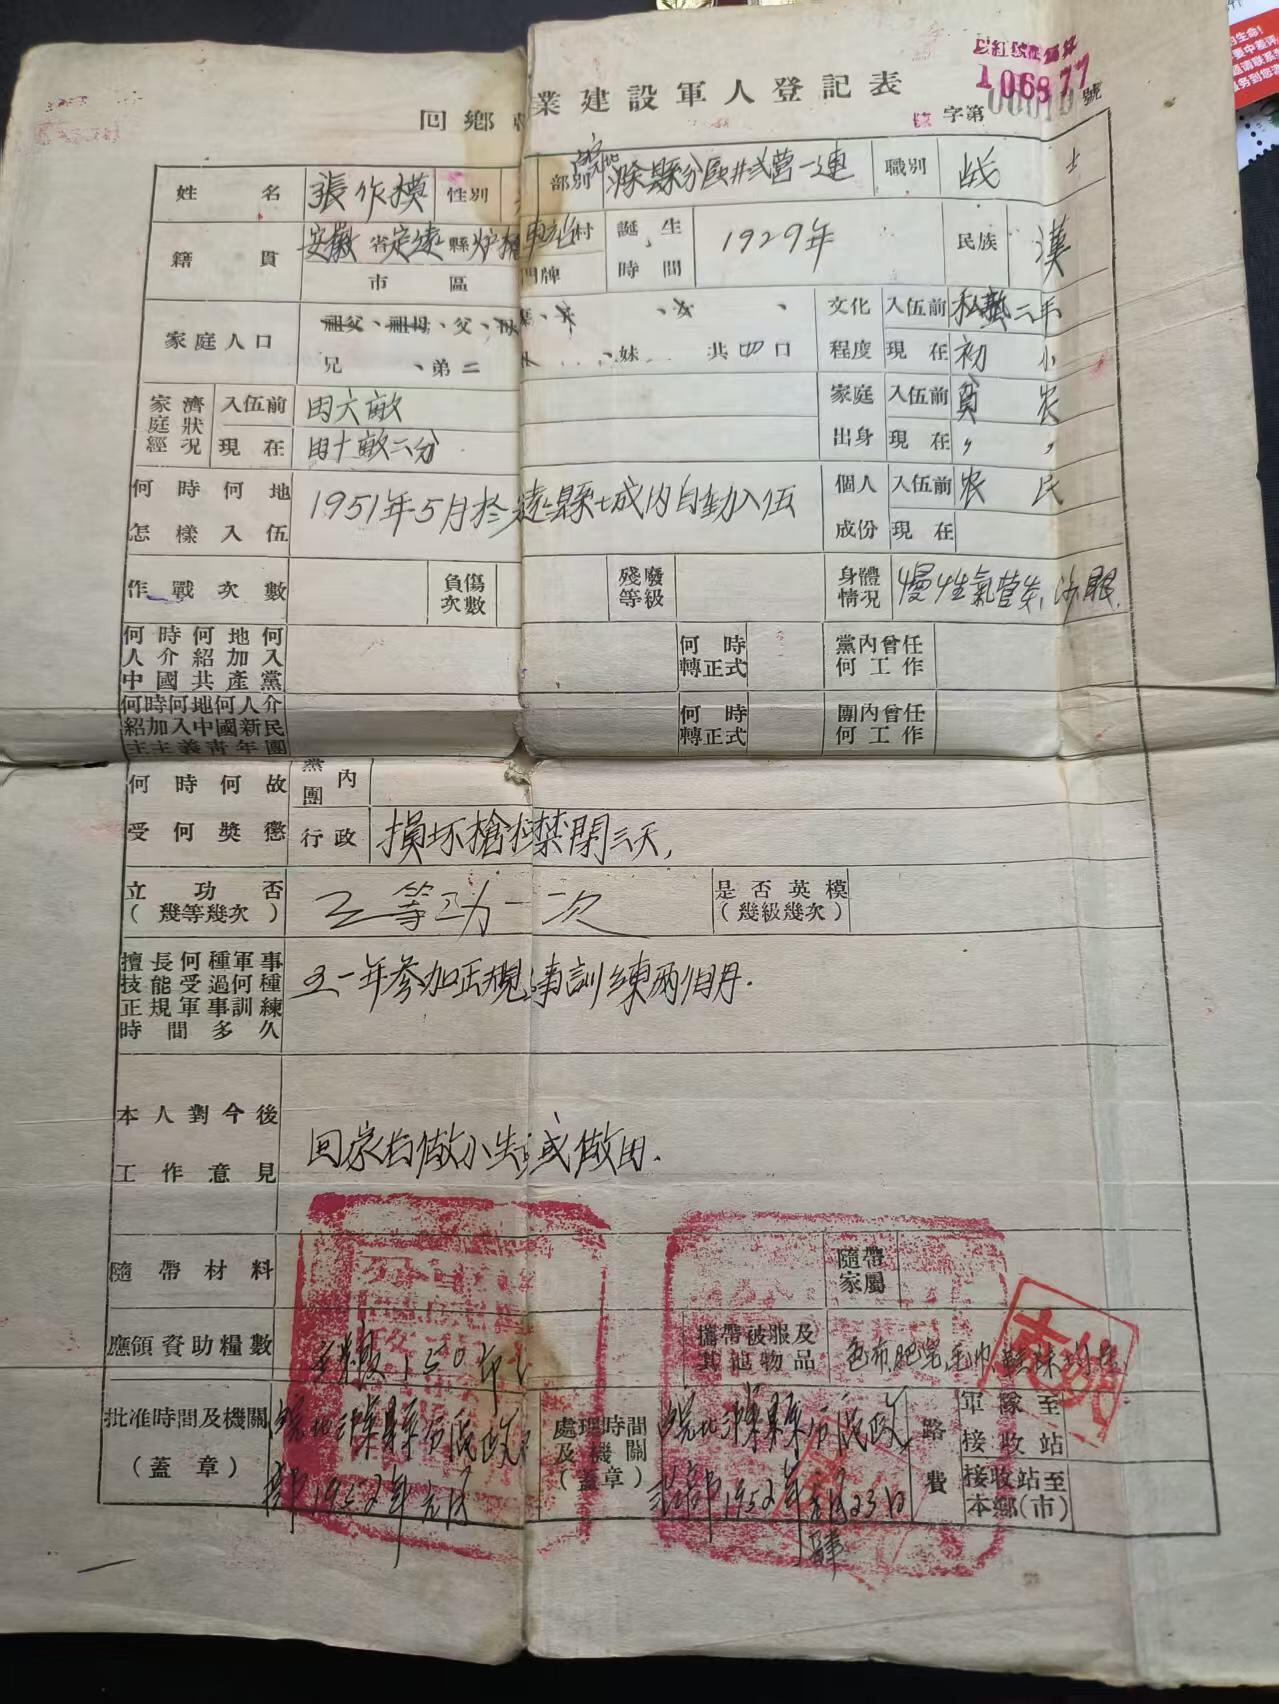 以紅號碼為準
106877
回鄉 業建設軍人登記表
字第 號
姓名 張作模 性別 部別 皖北滁縣分區廿弍營一連 職別 战士
籍貫 安徽省定遠縣炉橋車站村 誕生時間 1929年 民族 漢
市 區 門牌
家庭人口 祖父、祖母、父、 、妻、 、女 、
兄 、弟二 、妹 共四口
文化程度 入伍前 私塾二年
現在 初小
家庭經濟狀況 入伍前 田六畝
現在 田十畝二分
家庭出身 入伍前 貧农
現在 〃 〃
何時何地怎樣入伍 1951年5月於 遠縣城内自動入伍
個人成份 入伍前 农民
現在
作戰次數 負傷次數 殘廢等級 身體情況 慢性氣管炎，沙眼．
何時何地何人介紹加入中國共產黨 何時轉正式 黨內曾任何工作
何時何地何人介紹加入中國新民主主義青年團 何時轉正式 團內曾任何工作
何時何故受何獎懲 黨團內
行政 損坏槍 禁閉三天，
立功否（幾等幾次） 三等功一次 是否英模（幾級幾次）
擅長何種軍事技能受過何種正規軍事訓練時間多久 五一年参加正規 事訓練兩個月．
本人對今後工作意見 回家后做小生 或做田．
隨帶材料 隨帶家屬
應領資助糧數 150
攜帶被服及其他物品 色布肥皂，毛巾
批准時間及機關（蓋章） 皖北滁縣 政
1952年元月
處理時間及機關（蓋章） 皖北滁縣 政
1952年元月23日
路費 軍隊至接收站
接收站至本鄉（市）